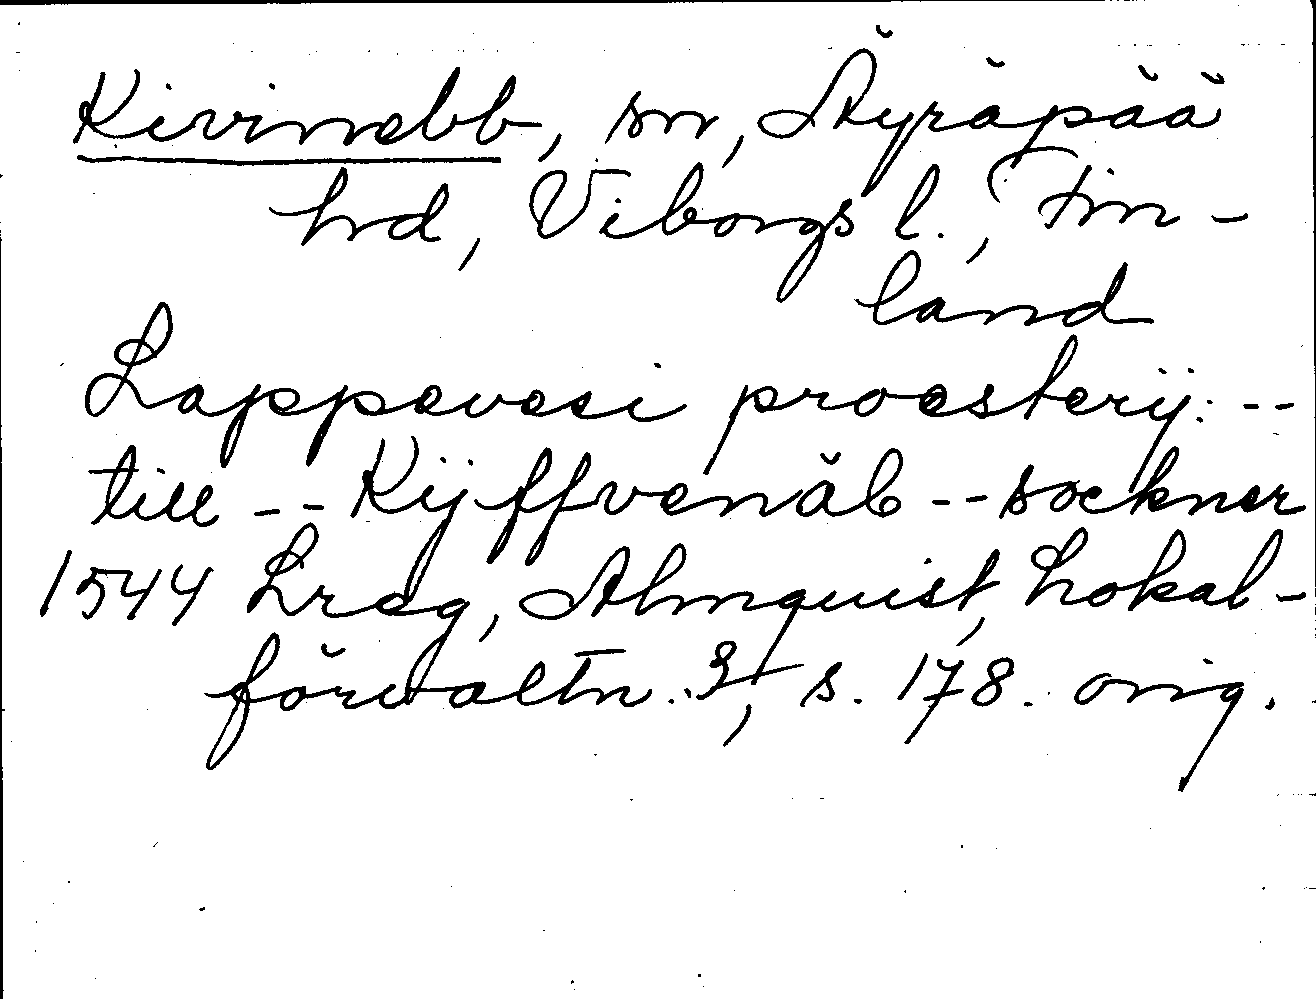 Kivinebb, sn, Äyräpää
hd, Viborgs l., Fin-
land
Lappevesi proesterij: --
till -- Kijffvenäb -- sockner
1544 Lreg, Almquist, Lokal-
förvaltn. 3, s. 178. orig.